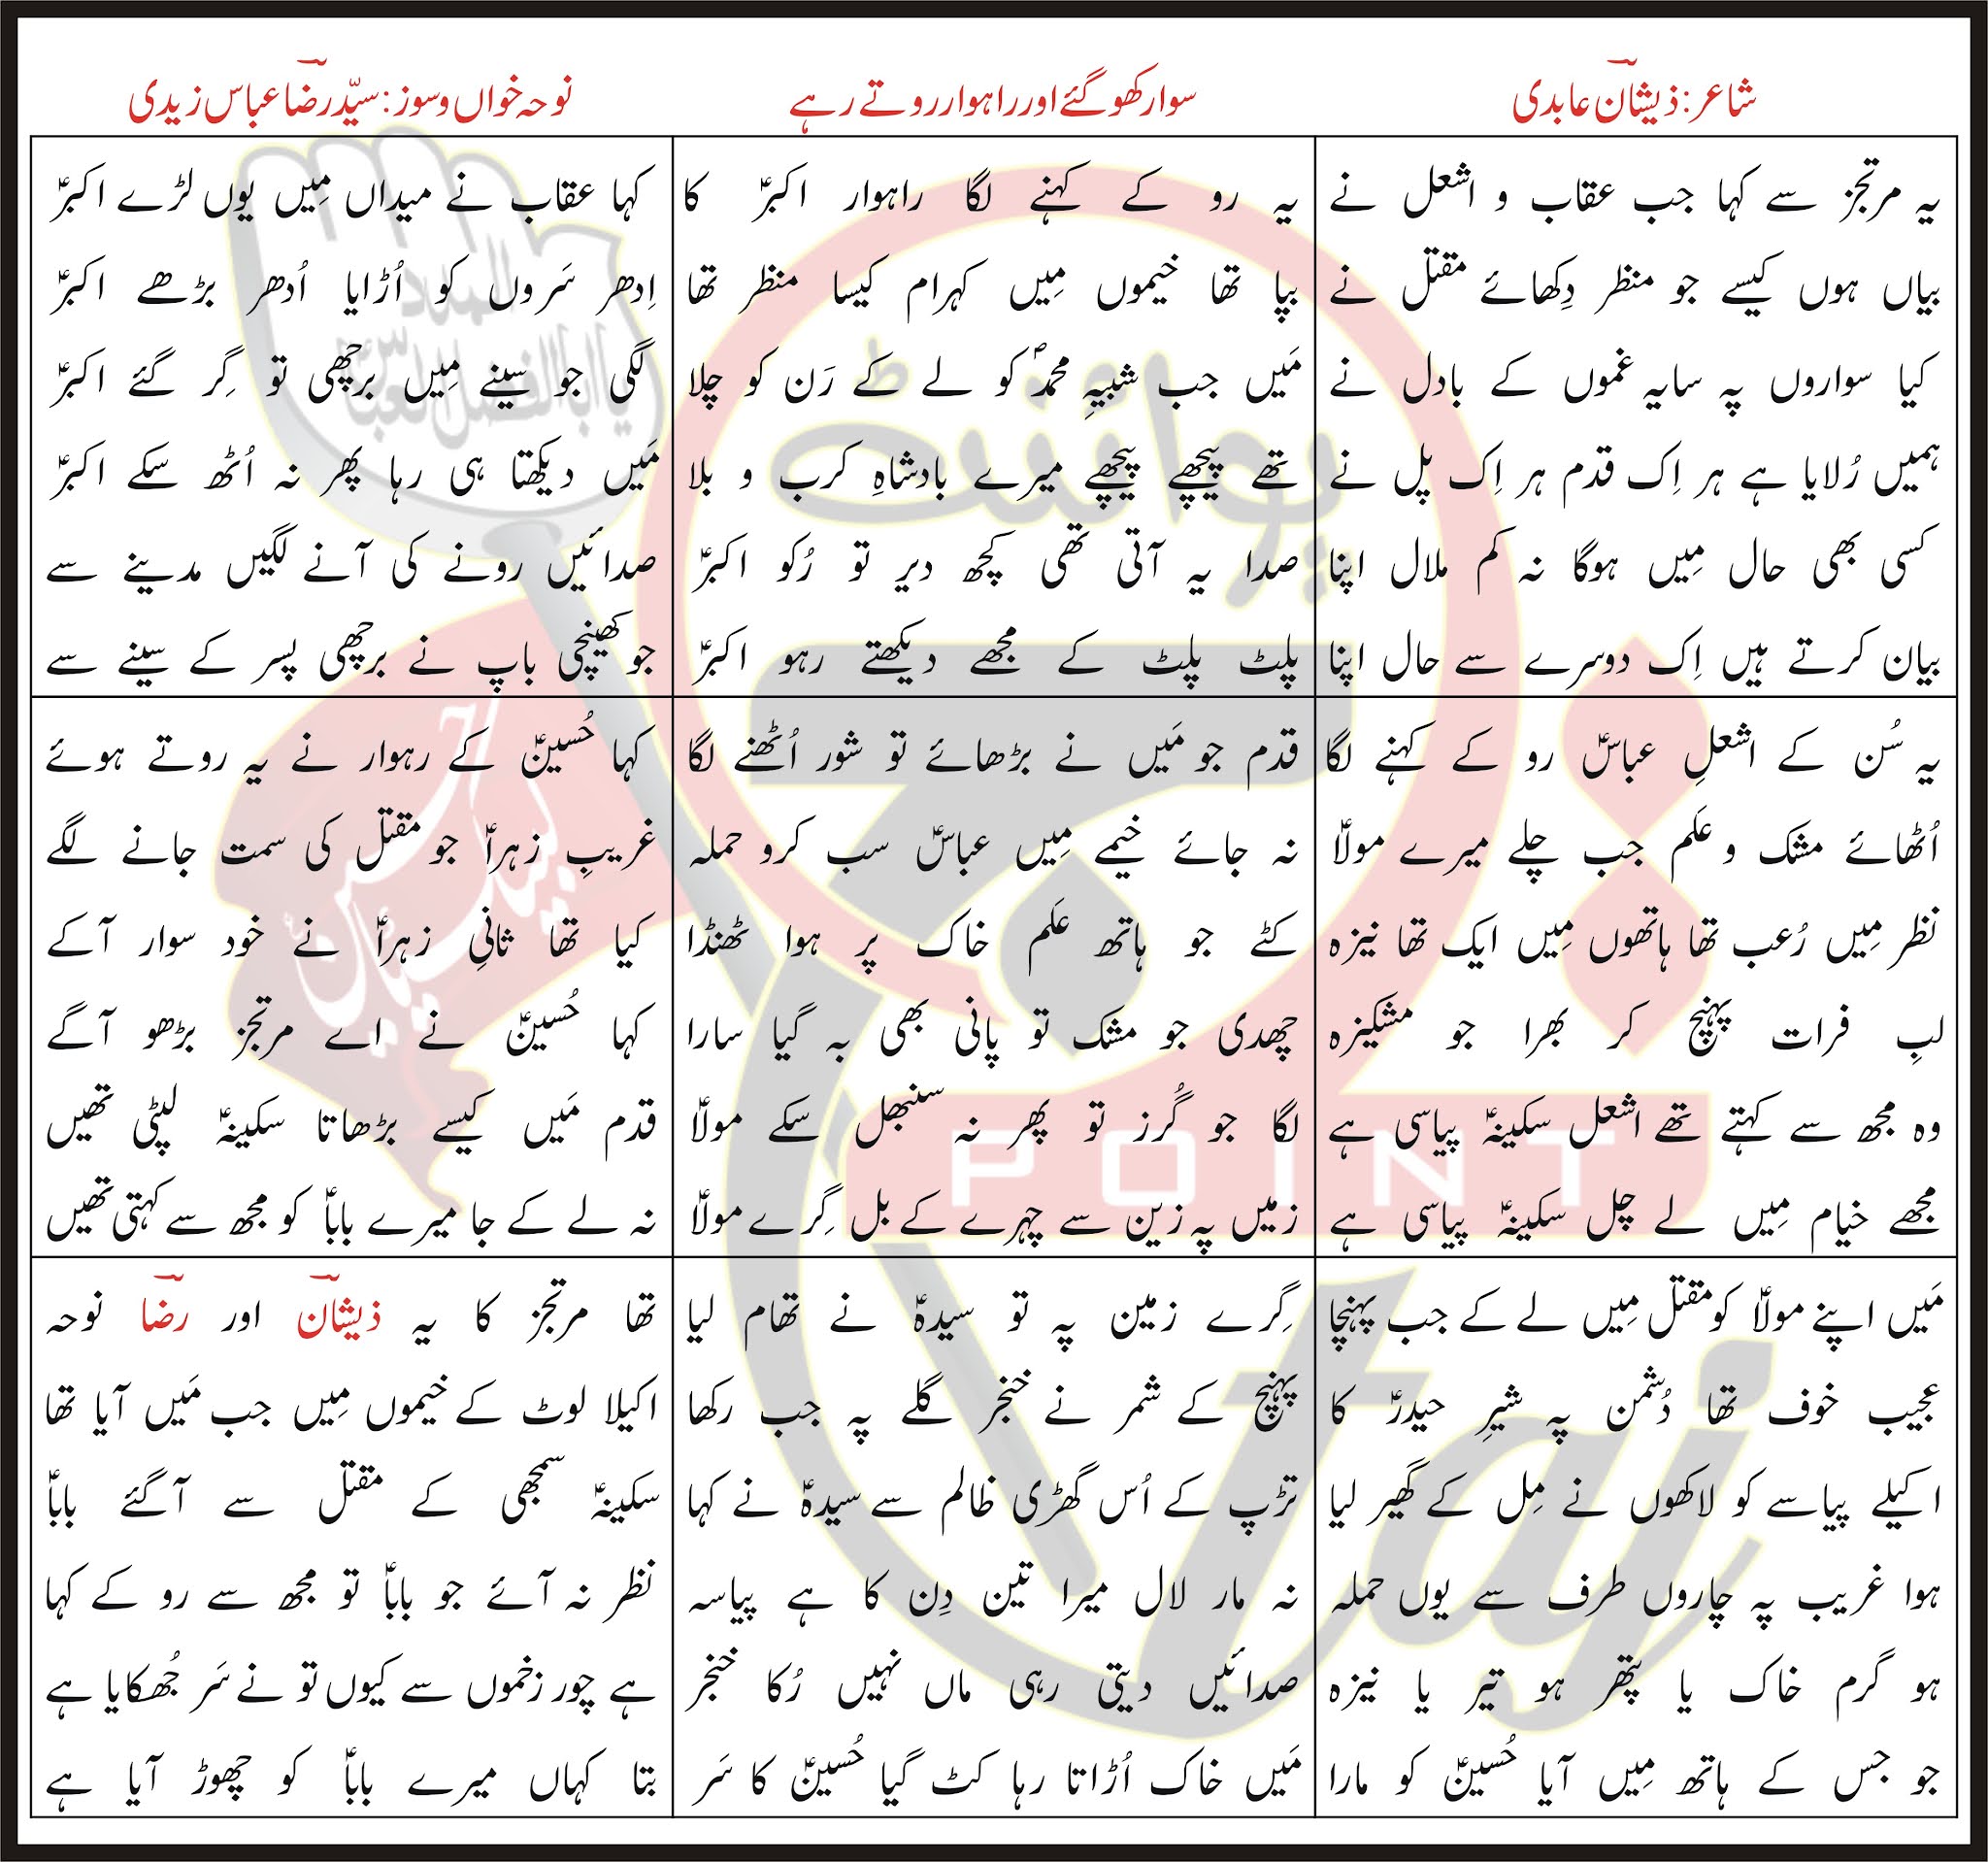 شاعر: ذیشانؔ عابدی
سوار کھو گئے اور راہوار روتے رہے
نوحہ خواں و سوز: سیّد رضاؔ عباس زیدی
یہ مرتجز سے کہا جب عقاب و اشعل نے
بیاں ہوں کیسے جو منظر دِکھائے مقتل نے
کیا سواروں پہ سایہ غموں کے بادل نے
ہمیں رُلایا ہے ہر اِک قدم ہر اِک پل نے
کسی بھی حال مِیں ہوگا نہ کم ملال اپنا
بیان کرتے ہیں اِک دوسرے سے حال اپنا
یہ رو کے کہنے لگا راہوار اکبرؑ کا
بپا تھا خیموں مِیں کہرام کیسا منظر تھا
مَیں جب شبیہِ محمدؐ کو لے کے رَن کو چلا
تھے پیچھے پیچھے میرے بادشاہِ کرب و بلا
صدا یہ آتی تھی کچھ دیر تو رُکو اکبرؑ
پلٹ پلٹ کے مجھے دیکھتے رہو اکبرؑ
کہا عقاب نے میداں مِیں یوں لڑے اکبرؑ
اِدھر سَروں کو اُڑایا اُدھر بڑھے اکبرؑ
لگی جو سینے مِیں برچھی تو گِر گئے اکبرؑ
مَیں دیکھتا ہی رہا پھر نہ اُٹھ سکے اکبرؑ
صدائیں رونے کی آنے لگیں مدینے سے
جو کھینچی باپ نے برچھی پسر کے سینے سے
یہ سُن کے اشعلِ عباسؑ رو کے کہنے لگا
اُٹھائے مشک و عَلم جب چلے میرے مولاؑ
نظر مِیں رُعب تھا ہاتھوں مِیں ایک تھا نیزہ
لبِ فرات پہنچ کر بھرا جو مشکیزہ
وہ مجھ سے کہتے تھے اشعل سکینہؑ پیاسی ہے
مجھے خیام مِیں لے چل سکینہؑ پیاسی ہے
قدم جو مَیں نے بڑھائے تو شور اُٹھنے لگا
نہ جائے خیمے مِیں عباسؑ سب کرو حملہ
کٹے جو ہاتھ عَلم خاک پر ہوا ٹھنڈا
چھدی جو مشک تو پانی بھی بہ گیا سارا
لگا جو گُرز تو پھر نہ سنبھل سکے مولاؑ
زمیں پہ زین سے چہرے کے بل گِرے مولاؑ
کہا حُسینؑ کے رہوار نے یہ روتے ہوئے
غریبِ زہراؑ جو مقتل کی سمت جانے لگے
کیا تھا ثانیِ زہراؑ نے خود سوار آکے
کہا حُسینؑ نے اے مرتجز بڑھو آگے
قدم مَیں کیسے بڑھاتا سکینہؑ لپٹی تھیں
نہ لے کے جا میرے باباؑ کو مجھ سے کہتی تھیں
مَیں اپنے مولاؑ کو مقتل مِیں لے کے جب پہنچا
عجیب خوف تھا دُشمن پہ شیرِ حیدرؑ کا
اکیلے پیاسے کو لاکھوں نے مِل کے گھیر لیا
ہوا غریب پہ چاروں طرف سے یوں حملہ
ہو گرم خاک یا پتھر ہو تیر یا نیزہ
جو جس کے ہاتھ مِیں آیا حُسینؑ کو مارا
گِرے زمین پہ تو سیدہؑ نے تھام لیا
پہنچ کے شمر نے خنجر گلے پہ جب رکھا
تڑپ کے اُس گھڑی ظالم سے سیدہؑ نے کہا
نہ مار لال میرا تین دِن کا ہے پیاسہ
صدائیں دیتی رہی ماں نہیں رُکا خنجر
مَیں خاک اُڑاتا رہا کٹ گیا حُسینؑ کا سَر
تھا مرتجز کا یہ ذیشانؔ اور رضاؔ نوحہ
اکیلا لوٹ کے خیموں مِیں جب مَیں آیا تھا
سکینہؑ سمجھی کے مقتل سے آگئے باباؑ
نظر نہ آئے جو باباؑ تو مجھ سے رو کے کہا
ہے چور زخموں سے کیوں تو نے سَر جُھکایا ہے
بتا کہاں میرے باباؑ کو چھوڑ آیا ہے
پوائنٹ
POINT
Taj
لبیک یا حسینؑ
یا ابا الفضل العباسؑ